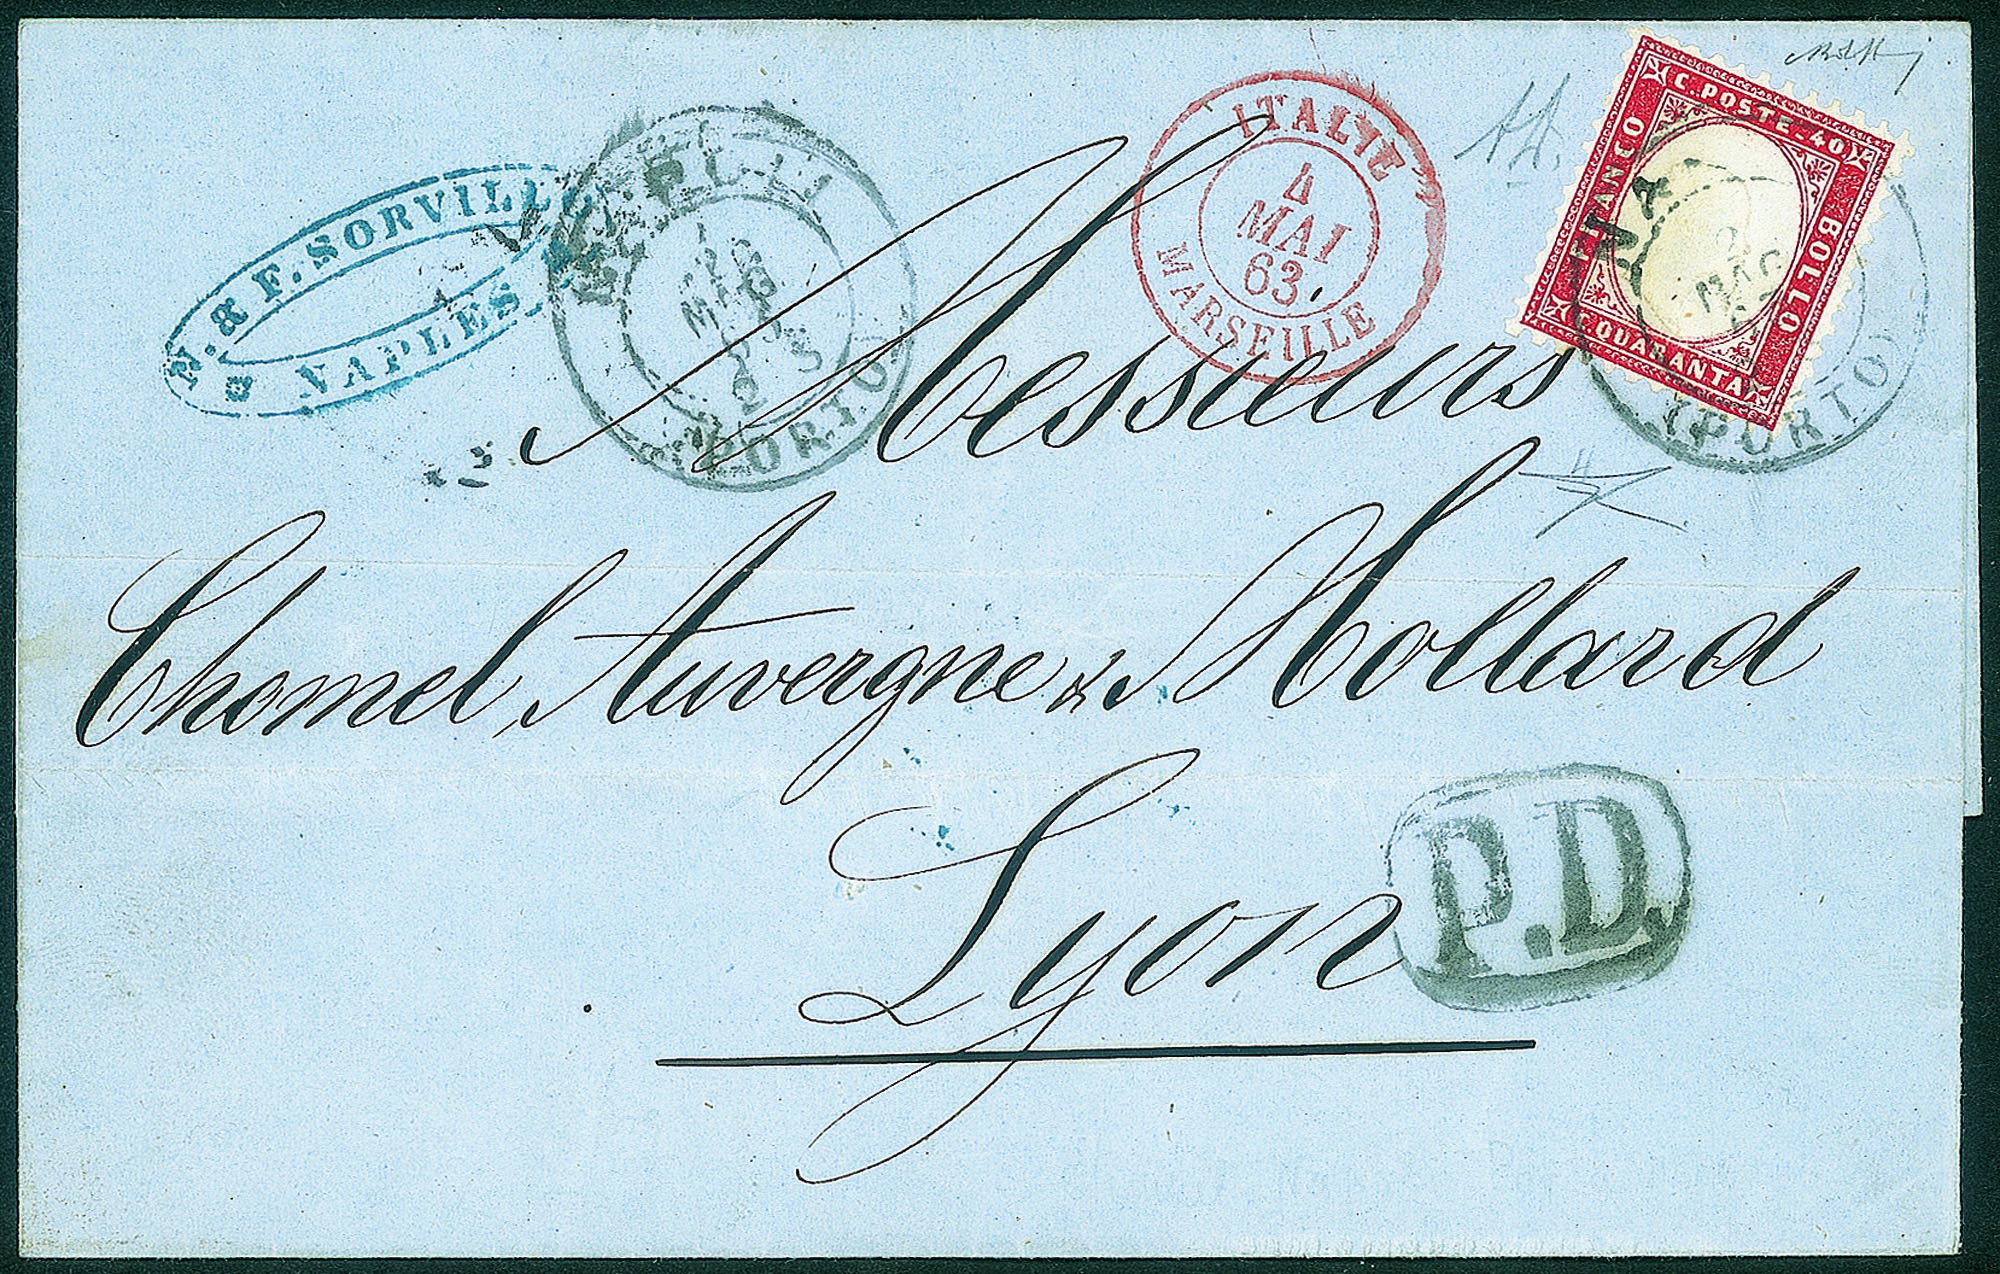 N. & F. SORVILL
NAPLES
(PORTO)
ITALIE
4
MAI
63
MARSEILLE
C. POSTE. 40
FRANCO
BOLLO
QUARANTA
NA
MAG
(PORTO)
Messieurs
Chomel, Auvergne & Mollard
Lyon
P.D.